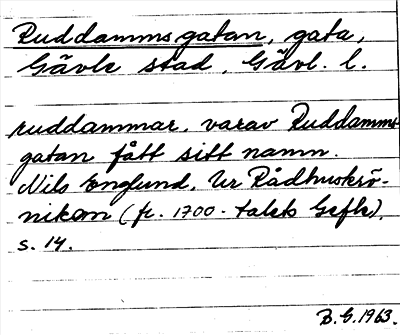 Ruddammsgatan, gata,
Gävle stad, Gävl. l.
ruddammar, varav Ruddamms-
gatan fått sitt namn.
Nils Englund, Ur Rådhuskrö-
nikan (fr. 1700-talets Gefle),
s. 14.
B.G. 1963.